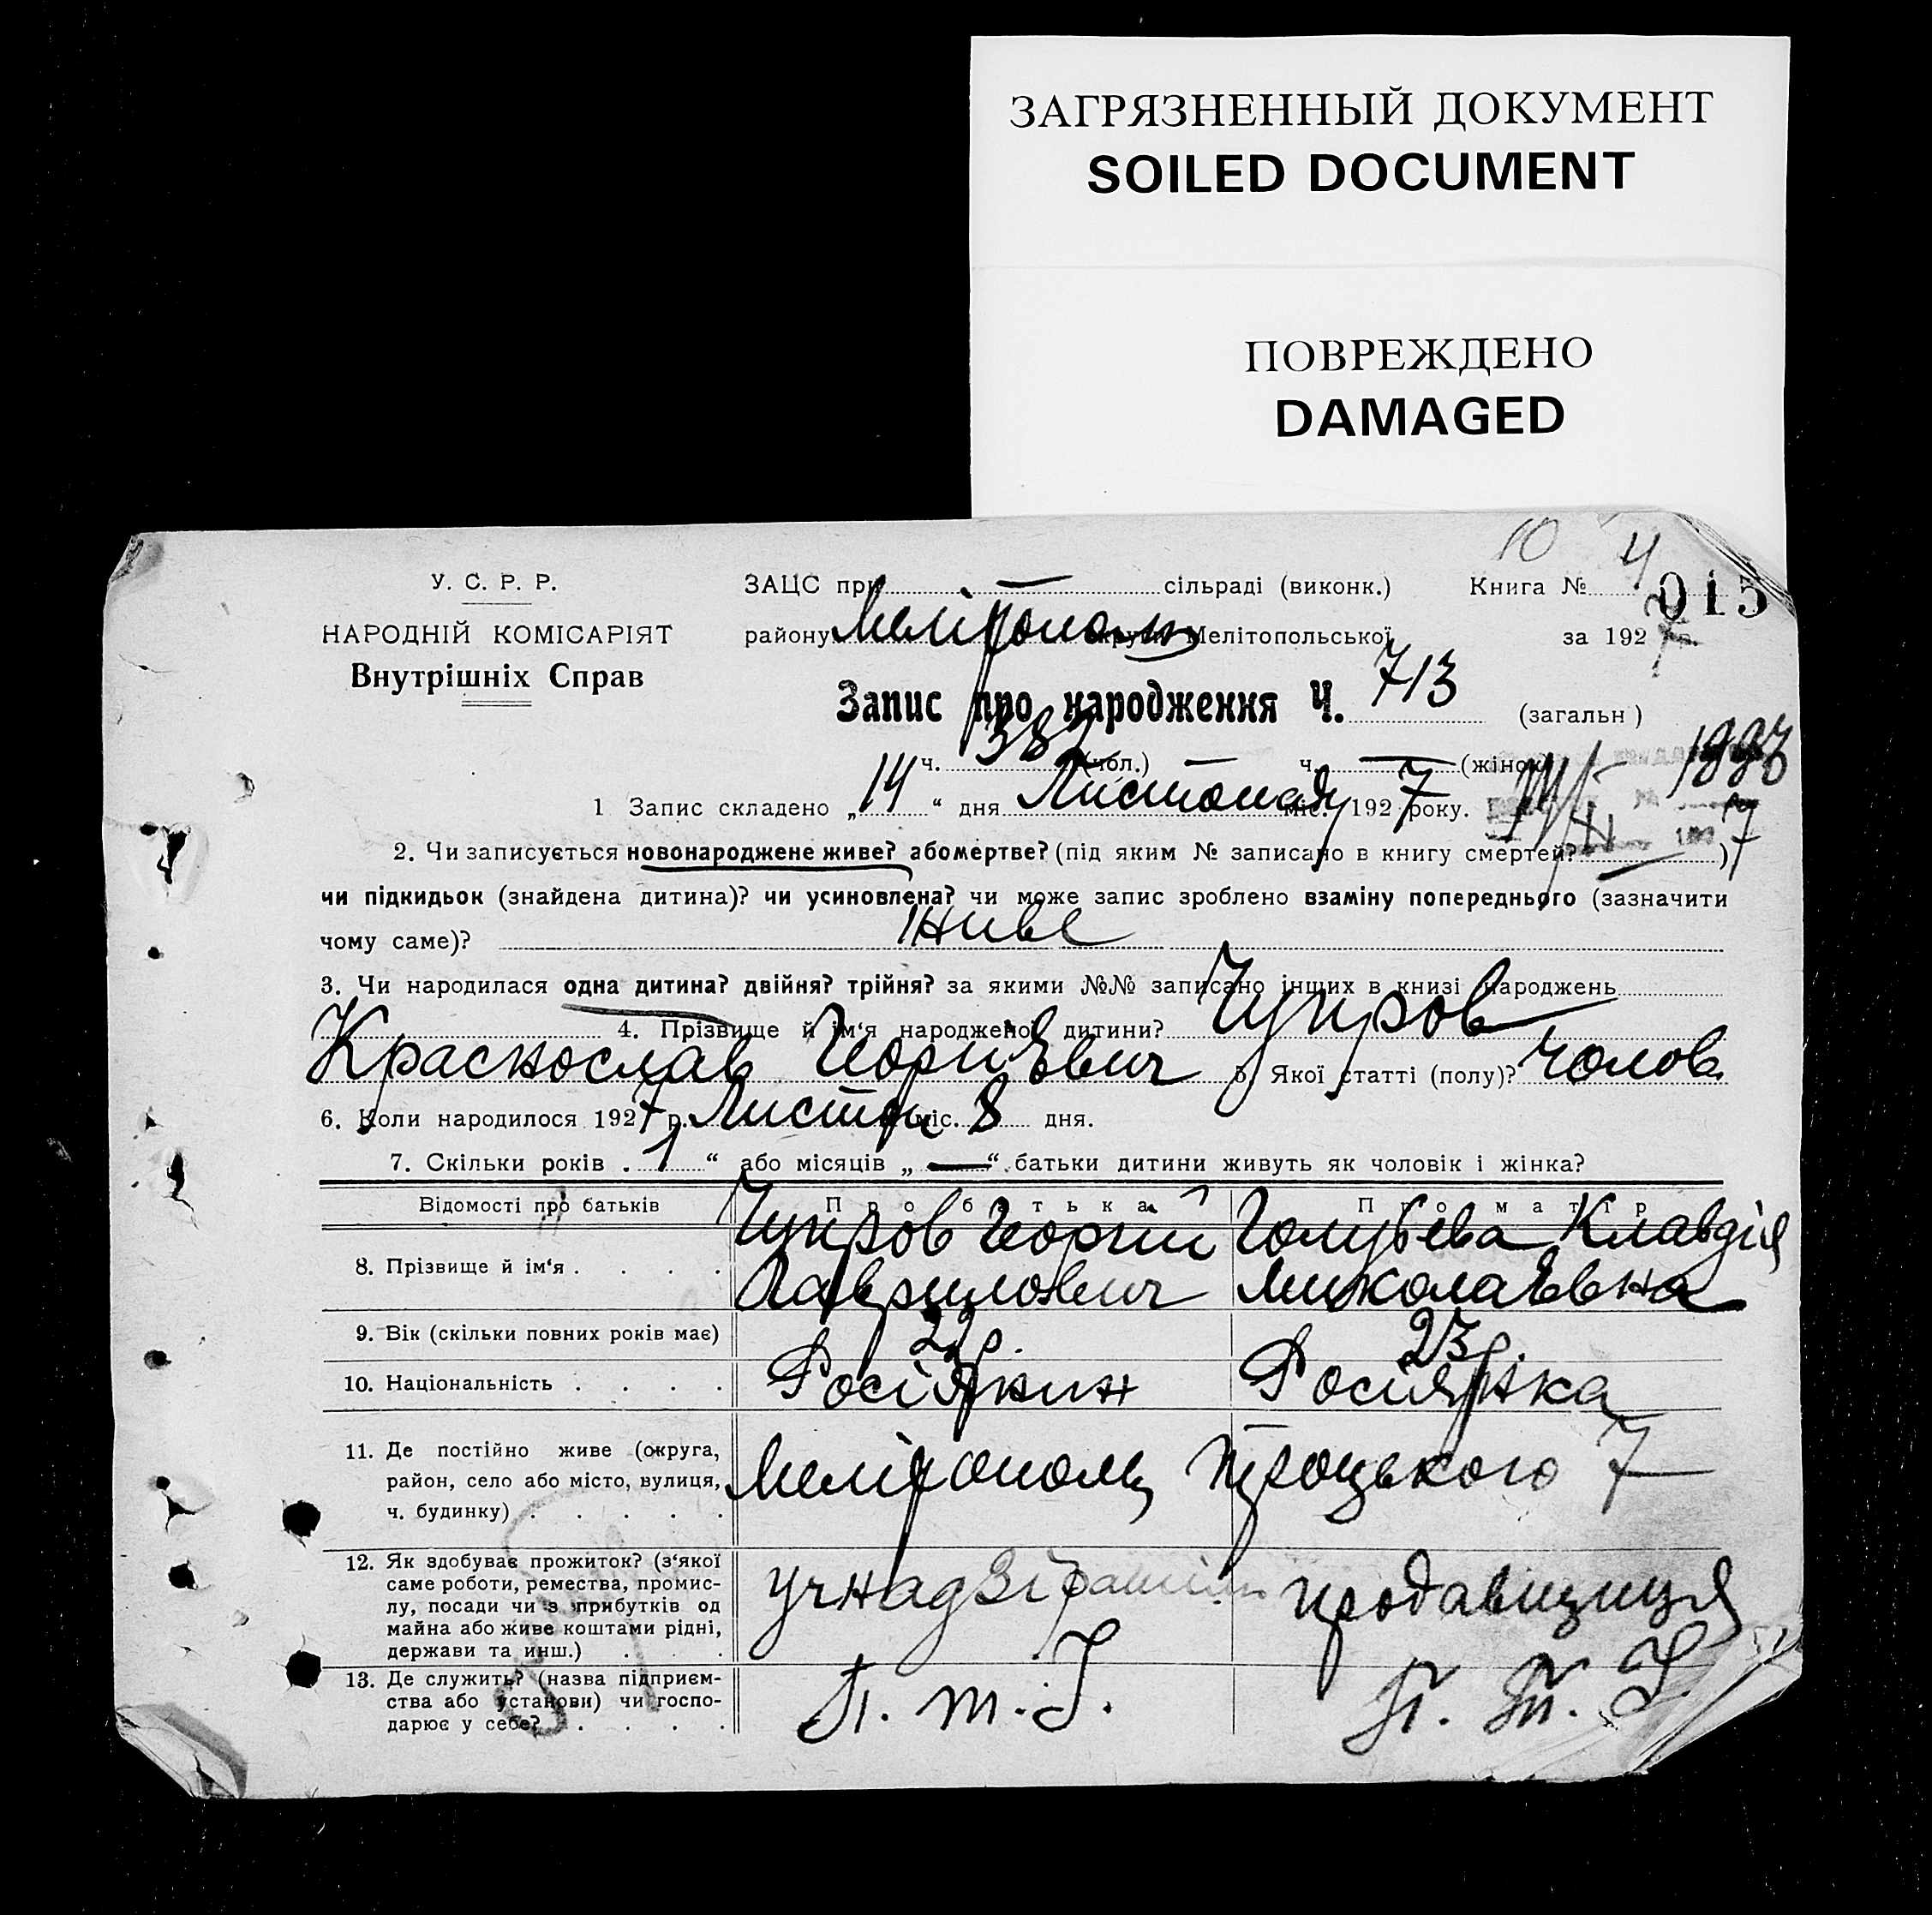 ЗАГРЯЗНЕННЫЙ ДОКУМЕНТ
SOILED DOCUMENT
ПОВРЕЖДЕНО
DAMAGED
10 4
У. С. Р. Р.
ЗАЦС при — сільраді (виконк.) Книга № 015
НАРОДНІЙ КОМІСАРІЯТ
району Мелітополь округи Мелітопольської за 1927
Внутрішніх Справ
Запис про народження Ч. 713 (загальн)
ч. 382 (чол.) ч. — (жіноч.)
1 Запис складено „14“ дня Листопаду міс. 1927 року.
2. Чи записується новонароджене живе? або мертве? (під яким № записано в книгу смертей? — )
чи підкидьок (знайдена дитина)? чи усиновлена? чи може запис зроблено взаміну попереднього (зазначити
чому саме)? Живе
3. Чи народилася одна дитина? двійня? трійня? за якими №№ записано інших в книзі народжень
4. Прізвище й ім‘я народженої дитини? Чупров
Краснослав Георгієвич 5. Якої статті (полу)? Чолов.
6. Коли народилося 1927 р. Листоп міс. 8 дня.
7. Скільки років „1“ або місяців „—“ батьки дитини живуть як чоловік і жінка?
Відомості про батьків Про батька Про матір
8. Прізвище й ім‘я . . . . Чупров Георгій Гаврилович Голубева Клавдія Миколаєвна
9. Вік (скільки повних років має) 22 р. 23 р.
10. Національність . . . . Росіянин Росіянка
11. Де постійно живе (округа,
район, село або місто, вулиця, Мелітополь Троцького 7
ч. будинку) . . . . .
12. Як здобуває прожиток? (з‘якої
саме роботи, ремества, промис-
лу, посади чи з прибутків од продавщиця
майна або живе коштами рідні,
держави та инш.) . . .
13. Де служить? (назва підприєм-
ства або установи) чи госпо-
дарює у себе? . . . .